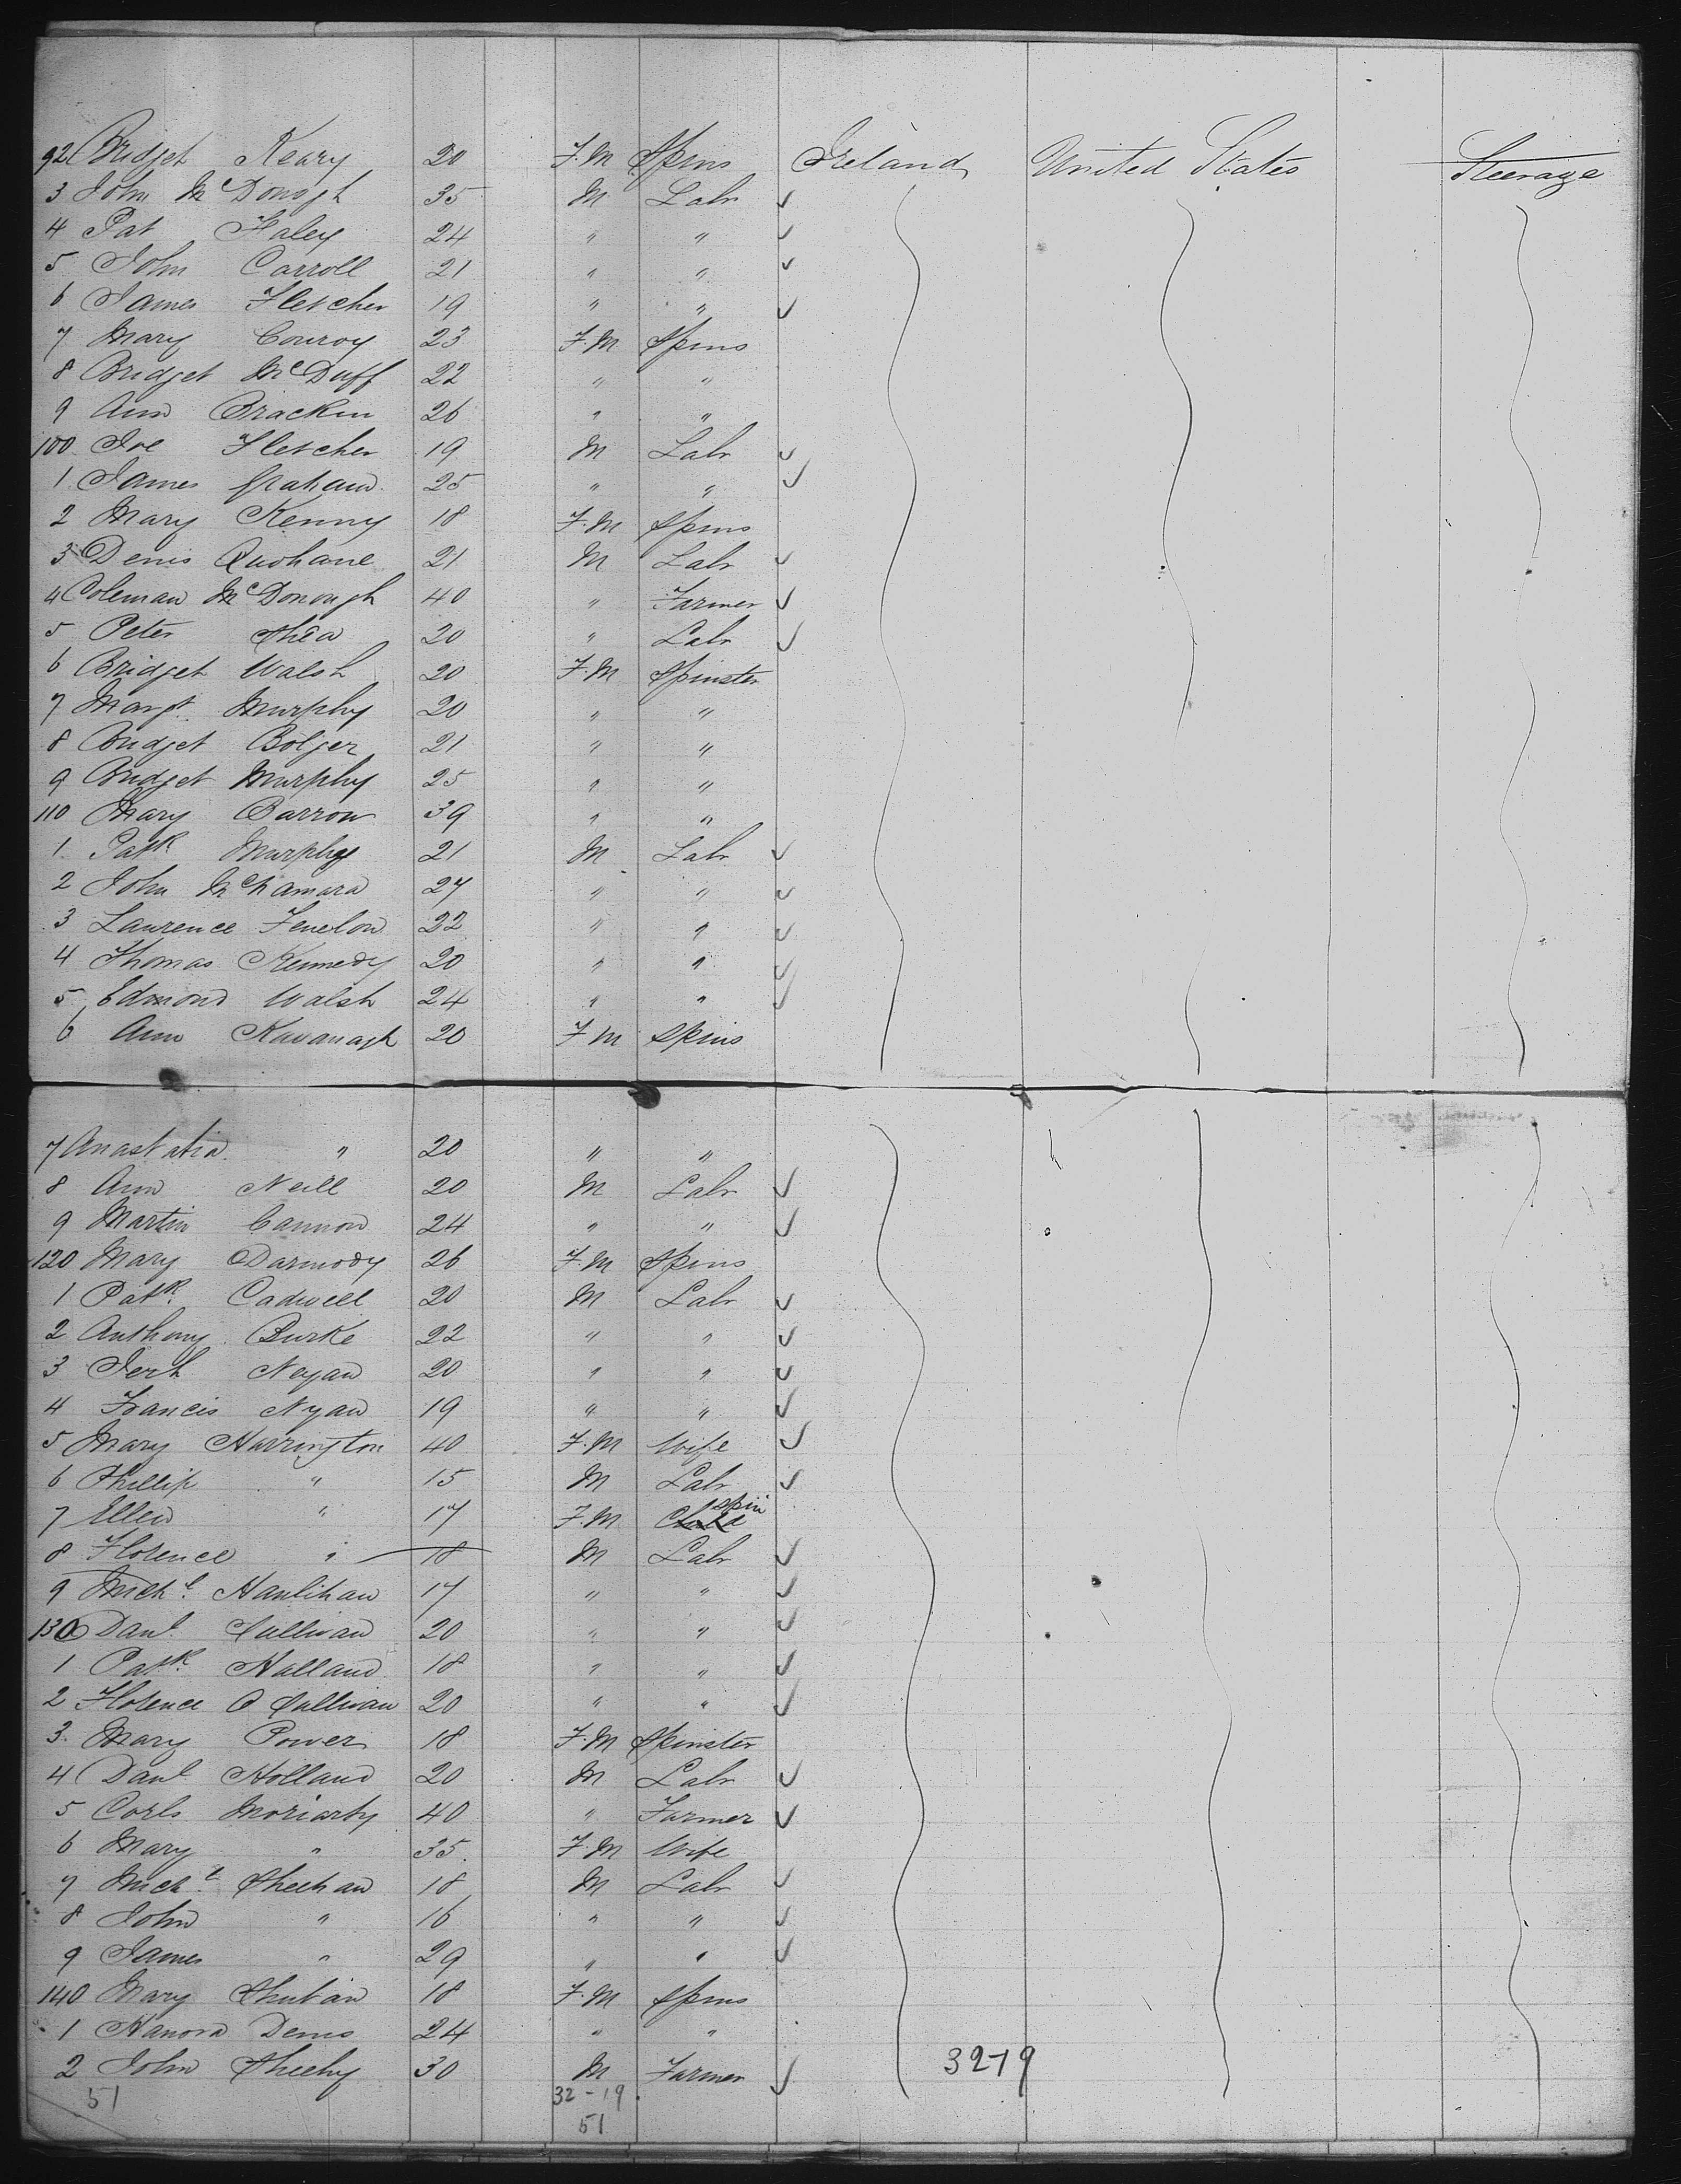 92 Bridget Keary 20 F.M Spins Ireland United States Steerage
3 John McDonogh 35 M Labr
4 Pat Haley 24 " "
5 John Carroll 21 " "
6 James Fletcher 19 " "
7 Mary Conroy 23 F.M Spins
8 Bridget McDuff 22 " "
9 Ann Bracken 26 " "
100 Joe Fletcher 19 M Labr
1 James Graham 25 " "
2 Mary Kenny 18 F.M Spins
3 Denis Quohane 21 M Labr
4 Coleman McDonough 40 " Farmer
5 Peter Shea 20 " Labr
6 Bridget Walsh 20 F.M Spinster
7 Margt Murphy 20 " "
8 Bridget Bolger 21 " "
9 Bridget Murphy 25 " "
110 Mary Barron 39 " "
1 Patk Murphy 21 M Labr
2 John McNamara 27 " "
3 Laurence Fenelon 22 " "
4 Thomas Kennedy 20 " "
5 Edmond Walsh 24 " "
6 Ann Kavanagh 20 F M Spins
7 Anastatia " 20 " "
8 Ann Neill 20 M Labr
9 Martin Cannon 24 " "
120 Mary Darmody 26 F.M Spins
1 Patk Cadwell 20 M Labr
2 Anthony Burke 22 " "
3 Jerh Negan 20 " "
4 Francis Nyan 19 " "
5 Mary Harrington 40 F.M Wife
6 Phillip " 15 M Labr
7 Ellen " 17 F.M Child spin
8 Florence " 18 M Labr
9 Michl Hanlihan 17 " "
130 Danl Sullivan 20 " "
1 Patk Halland 18 " "
2 Florence O Sullivan 20 " "
3 Mary Power 18 F.M Spinster
4 Danl Holland 20 M Labr
5 Corls Moriarty 40 " Farmer
6 Mary " 35 F.M Wife
7 Michl Sheehan 18 M Labr
8 John " 16 " "
9 James " 29 " "
140 Mary Shuban 18 F.M Spins
1 Hanora Denis 24 " "
2 John Sheehy 30 M Farmer 32-19
51 32-19
51